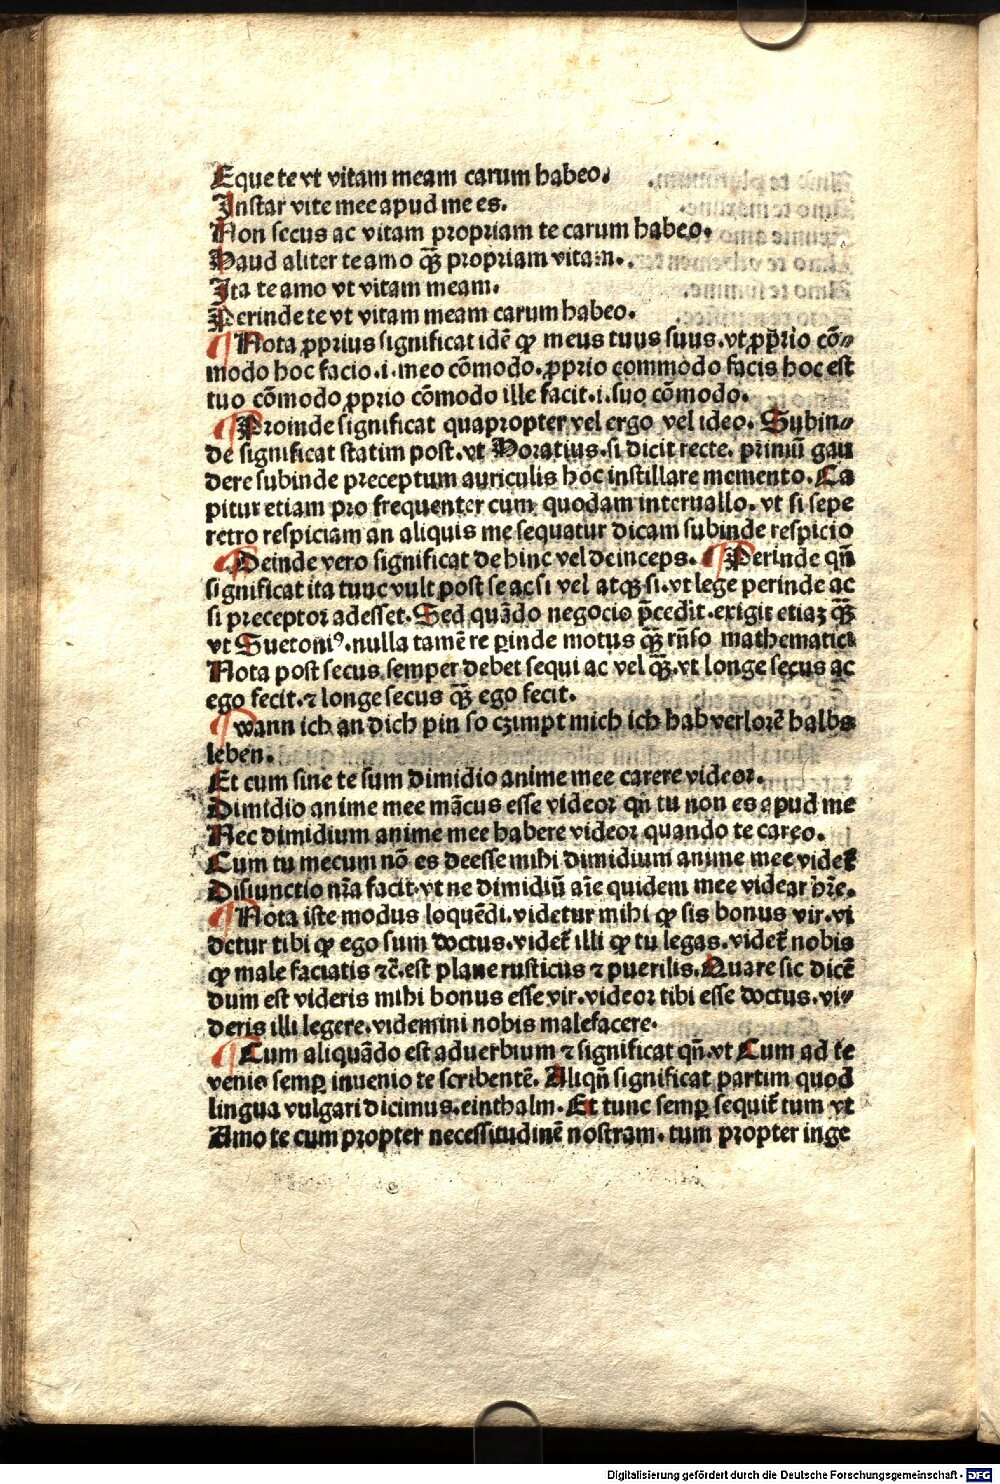 Eque te vt vitam meam carum habeo.
Instar vite mee apud me es.
Non secus ac vitam propriam te carum habeo.
Haud aliter te amo qȝ̃ propriam vitam.
Ita te amo vt vitam meam.
Perinde te vt vitam meam carum habeo.
¶ Nota ꝓprius significat idẽ ꝙ meus tuus suus. vt ꝓprio cõ⸗
modo hoc facio .i. meo cõmodo. ꝓprio commodo facis hoc est
tuo cõmodo ꝓprio cõmodo ille facit .i. suo cõmodo.
¶ Proinde significat quapropter vel ergo vel ideo. Subin⸗
de significat statim post. vt Horatius. si dicit recte. primũ gau
dere subinde preceptum auriculis hoc instillare memento. Ca
pitur etiam pro frequenter cum quodam interuallo. vt si sepe
retro respiciam an aliquis me sequatur dicam subinde respicio
¶ Deinde vero significat dehinc vel deinceps. ¶ Perinde qñ
significat ita tunc vult post se ac si vel atqȝ si. vt lege perinde ac
si preceptor adesset. Sed quãdo negocio p̃cedit. exigit etiaȝ qȝ̃
vt Suetoniꝰ. nulla tamẽ re ꝑinde motus qȝ̃ rñso mathematici
Nota post secus semper debet sequi ac vel qȝ̃. vt longe secus ac
ego fecit. ⁊ longe secus qȝ̃ ego fecit.
¶ wann ich an dich pin so czimpt mich ich hab verlorẽ halbs
leben.
Et cum sine te sum dimidio anime mee carere videor.
Dimidio anime mee mãcus esse videor qñ tu non es apud me
Nec dimidium anime mee habere videor quando te careo.
Cum tu mecum nõ es deesse mihi dimidium anime mee videt̃
Disiunctio nr̃a facit. vt ne dimidiũ aĩe quidem mee videar hr̃e.
¶ Nota iste modus loquẽdi. videtur mihi ꝙ sis bonus vir. vi
detur tibi ꝙ ego sum doctus. videt̃ illi ꝙ tu legas. videt̃ nobis
ꝙ male faciatis ⁊c̃. est plane rusticus ⁊ puerilis. Quare sic dicẽ
dum est videris mihi bonus esse vir. videor tibi esse doctus. vi⸗
deris illi legere. videmini nobis malefacere.
¶ Cum aliquãdo est aduerbium ⁊ significat qñ. vt Cum ad te
venio semꝑ inuenio te scribentẽ. Aliqñ significat partim quod
lingua vulgari dicimus. einthalm. Et tunc semꝑ sequit̃ tum vt
Amo te cum propter necessitudinẽ nostram. tum propter inge
Digitalisierung gefördert durch die Deutsche Forschungsgemeinschaft - DFG